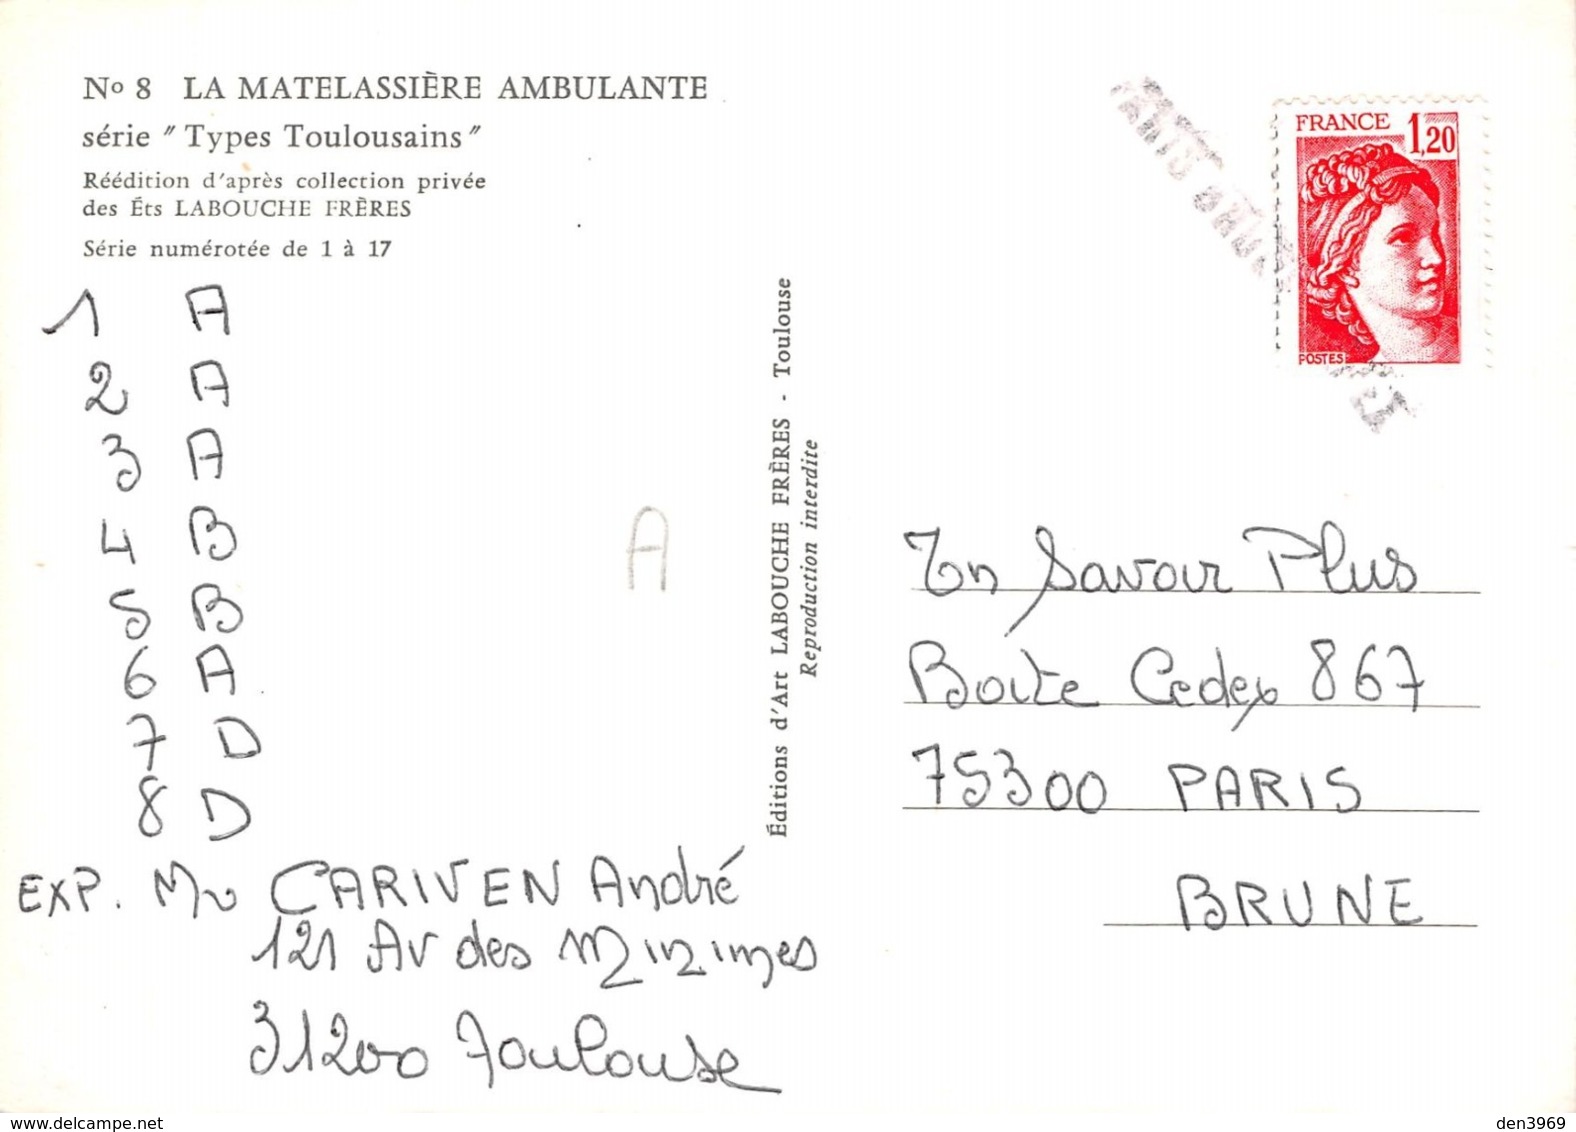 No 8 LA MATELASSIÈRE AMBULANTE
série "Types Toulousains"
Réédition d'après collection privée
des Éts LABOUCHE FRÈRES
Série numérotée de 1 à 17
1 A
2 A
3 A
4 B
5 B
6 A
7 D
8 D
A
EXP. Mr CARIVEN André
121 Av des Minimes
31200 Toulouse
Éditions d'Art LABOUCHE FRÈRES - Toulouse
Reproduction interdite
FRANCE 1,20
POSTES
En Savoir Plus
Boite Cedex 867
75300 PARIS
BRUNE
www.delcampe.net
den3969